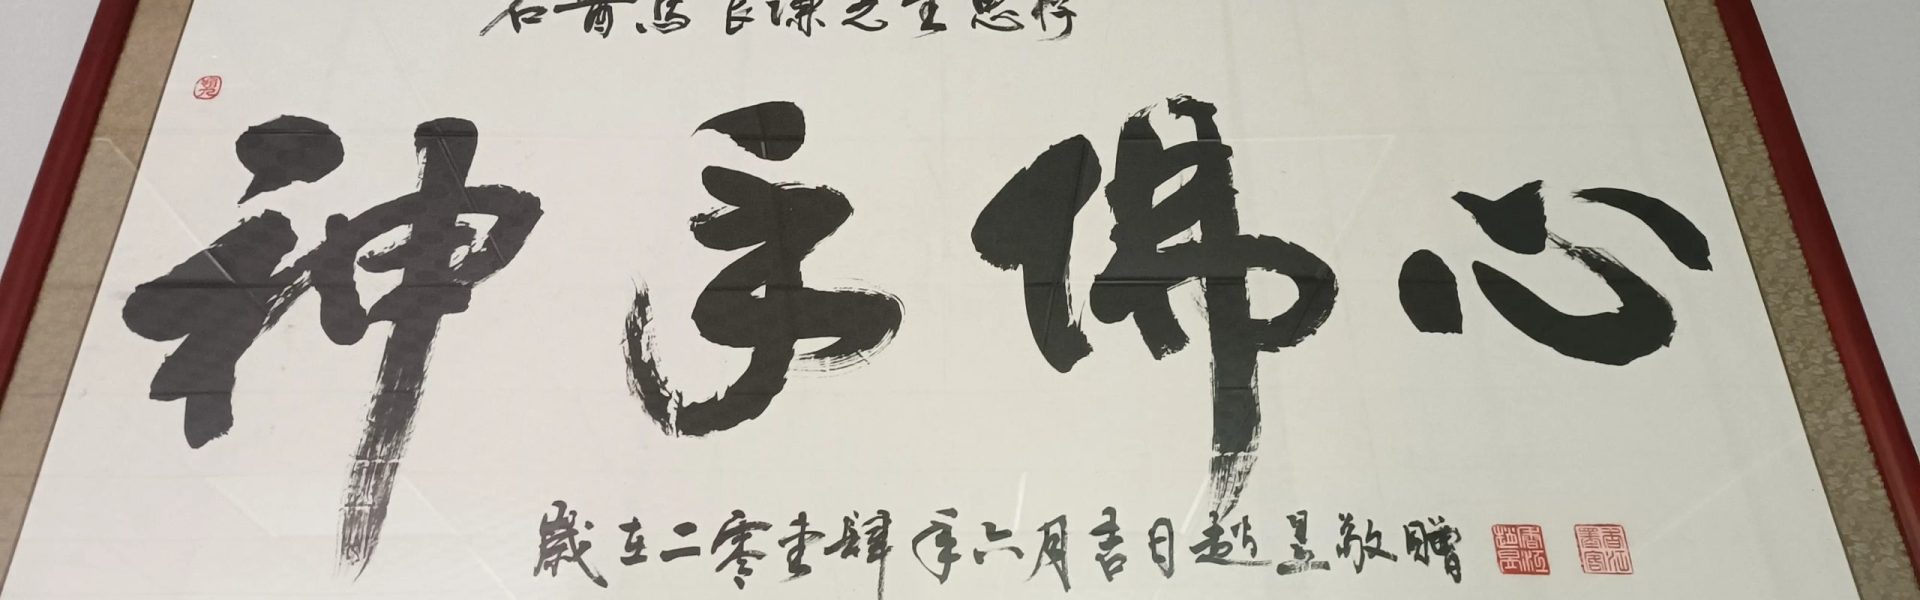 石首馬良謙先生惠存
神手佛心
歲在二零壹肆年六月吉日趙昱敬贈